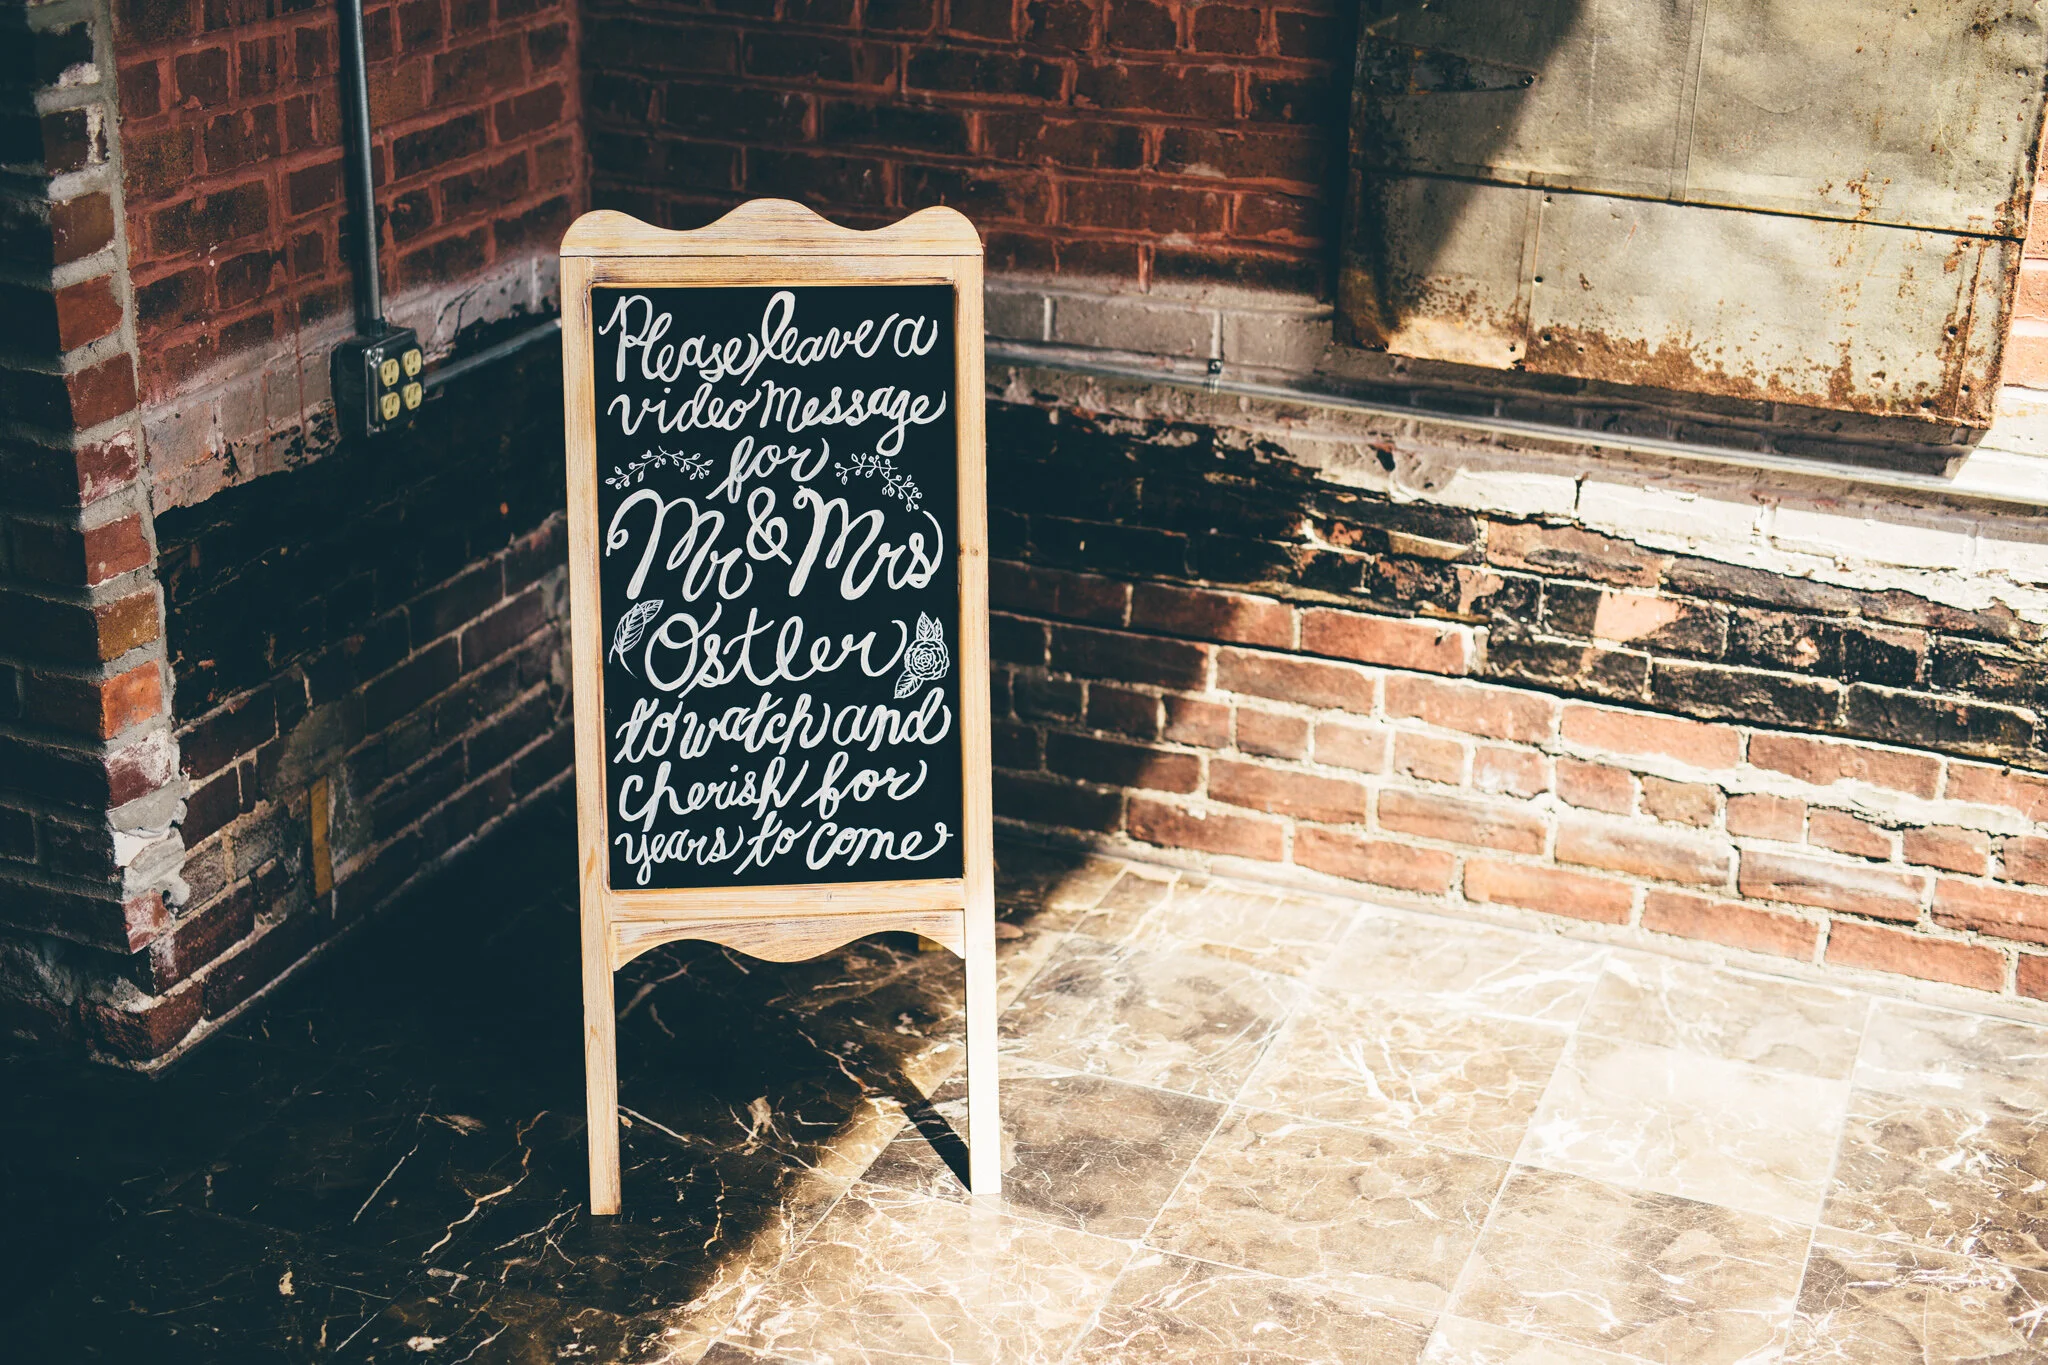 Please leave a
video message
for
Mr & Mrs
Ostler
to watch and
cherish for
years to come